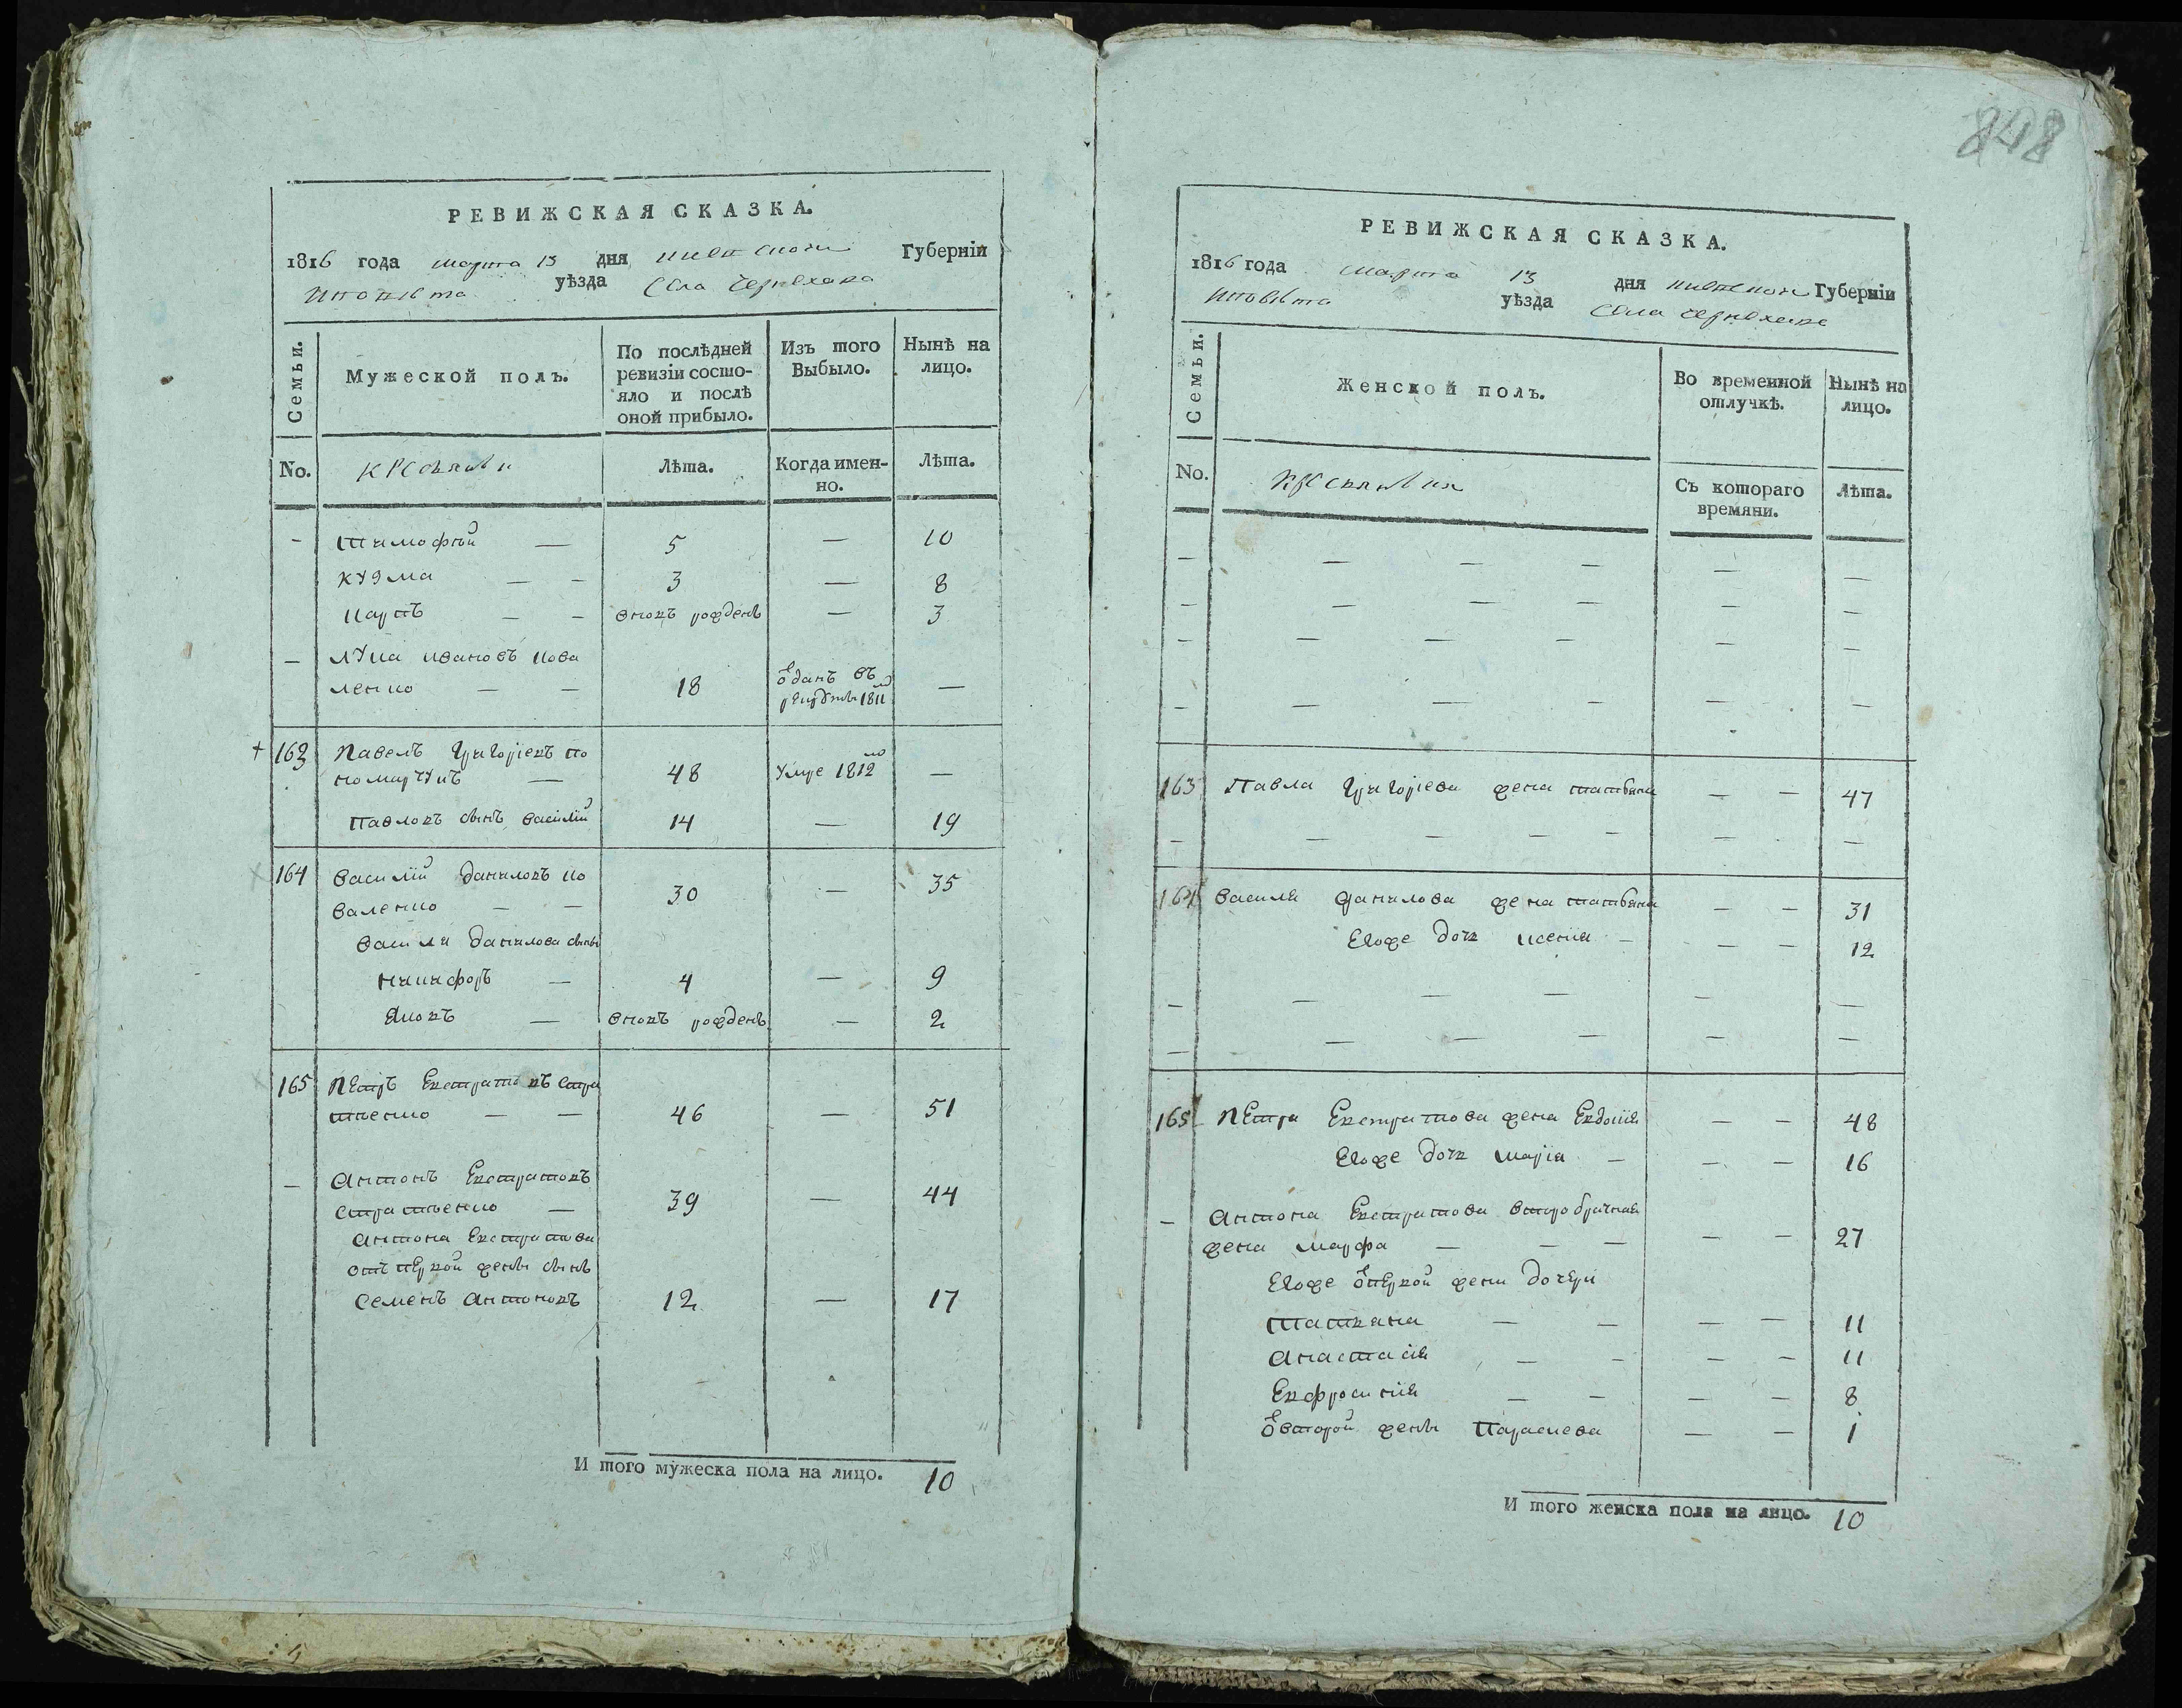 РЕВИЖСКАЯ СКАЗКА.
1816 года марта 13 дня Киевской Губерніи
уѣзда Села Черняхова
Семьи.
Мужеской полъ.
По послѣдней ревизіи состояло и послѣ оной прибыло.
Изъ того Выбыло.
Нынѣ на лицо.
No.
Лѣта.
Когда именно.
Лѣта.
- Тимофѣй — 5 — 10
Кузма — - 3 — 8
Карпъ — - вновь рожденъ — 3
— Лука Ивановъ Кова
ленко — — 18 ѿданъ въ рекрути 1811 —
163 Павелъ Григоріевъ по
номарчукъ — 48 умре 1812 —
Павловъ сынъ Василій 14 — 19
164 Василій Даниловъ ко
валенко — — 30 — 35
Василя Данилова сыны
Никифоръ — 4 — 9
Яковъ — вновь рожденъ — 2
165 Петръ Евстратовъ Стра
тіенко — — 46 — 51
— Антонъ Евстратовъ
Стратіенко — 39 — 44
Антона Евстратова
отъ первой жены сынъ
Семенъ Антоновъ 12 — 17
И того мужеска пола на лицо. 10
848
РЕВИЖСКАЯ СКАЗКА.
1816 года марта 13 дня Киевской Губерніи
уѣзда Села Черняхова
Семьи.
Женской полъ.
Во временной отлучкѣ.
Нынѣ на лицо.
No.
Съ котораго времяни.
Лѣта.
163 Павла Григоріева жена Татьяна — — 47
164 Василя Данилова жена Татьяна — — 31
Егоже дочь Ксенія — — — 12
165 Петра Евстратова жена Евдокія — — 48
Егоже дочь Марія — — — 16
— Антона Евстратова второбрачная
жена Марфа — — — — — 27
Егоже ѿ первой жены дочери
Татьяна — — — — 11
Анастасія — - — — 11
Евфросинія — — — — 8
ѿ второй жены Параскева — — 1
И того женска пола на лицо. 10